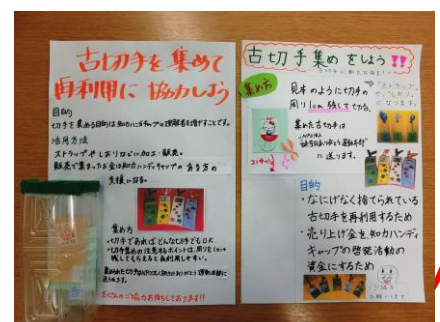 古切手を集めて
再利用に協力しよう
目的
切手を集める目的は知的ハンディキャップの理解者を増やすことです。
活用方法
ストラップやしおりなどに加工・販売。
販売で集まったお金は知的ハンディキャップのある方の
支援になる。
集め方
・切手であればどんな切手でもOK
・切手集めの注意するポイントは、周りを1cm
残してもらえると再利用しやすい。
たくさんのご協力お待ちしております!!
古切手集めをしよう!!
集め方
見本のように切手の
周り1cm残して切る。
集めた古切手は
に送ります。
目的
・なにげなく捨てられている
古切手を再利用するため
・売り上げ金を、知的ハンディ
キャップの啓発活動の
資金にするため